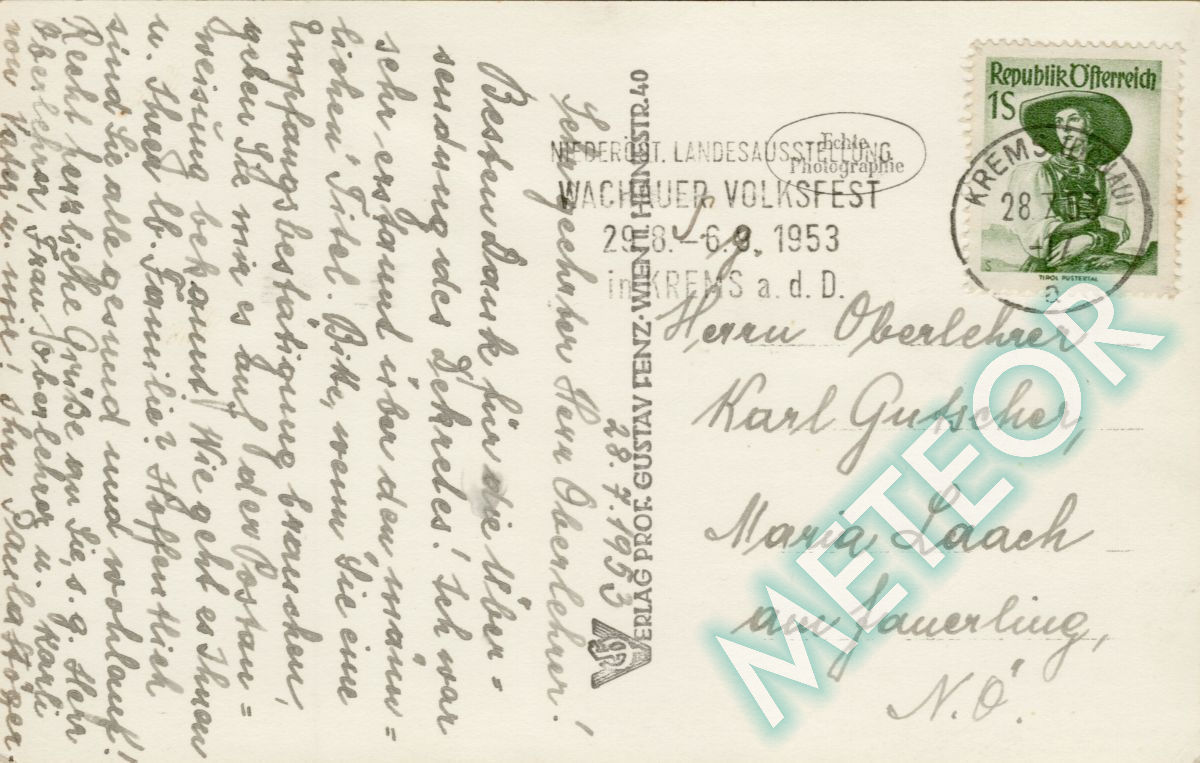 28.7.1953
Sehrgeehrter Herr Oberlehrer!
Besten Dank für die Über=
sendung des Dekretes! Ich war
sehr erstaunt über den männ=
lichen Titel. Bitte, wenn Sie eine
Empfangsbestätigung brauchen,
geben Sie mir es auf der Postan=
weisung bekannt! Wie geht es Ihnen
u. Ihrer lb. Familie? Hoffentlich
sind Sie alle gesund und wohlauf!
Recht herzliche Grüße an Sie, s. g. Herr
Oberlehrer, Frau Oberlehrer u. Karli
von Vater u. mir! Ihre
VERLAG PROF. GUSTAV FENZ · WIEN II. HEINESTR. 40
Echte
Photographie
NIEDERÖST. LANDESAUSSTELLUNG
WACHAUER VOLKSFEST
29.8.–6.9. 1953
in KREMS a. d. D.
Republik Österreich
1S
TIROL PUSTERTAL
KREMS
28
S. g.
Herrn Oberlehrer
Karl Gutscher,
Maria Laach
am Jauerling,
N.Ö.
METEOR